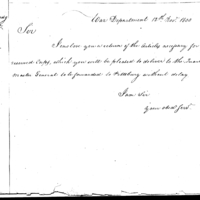 War Department 13th Decr. 1800
Sir
I enclose you a return of the articles necessary for
which you will be pleased to deliver to the Quarter
Master General to be forwarded to Pittsburg without delay
I am Sir
your obdt Servt